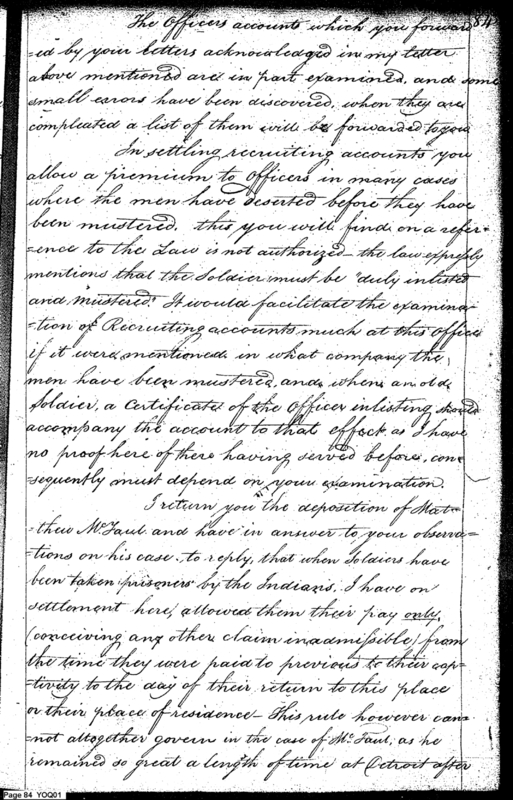 84
The Officers accounts which you forward
=ed by your letters acknowledged in my letter
above mentioned are in part examined, and some
small errors have been discovered, when they are
compleated a list of them will be forwarded to you
In settling recruiting accounts you
allow a premium to Officers in many cases
where the men have deserted before they have
been mustered. this you will find on a refer=
=ence to the Law is not authorized — the law expressly
mentions that the Soldier must be "duly inlisted
and mustered." It would facilitate the examina=
=tion of Recruiting accounts much at this Office
if it were mentioned in what company the
men have been mustered, and when an old
Soldier, a Certificate of the Officer inlisting should
accompany the account to that effect as I have
no proof here of there having served before, con
=sequently must depend on your examination.
I return you the deposition of Mat=
=thew McFaul and have in answer to your observa=
=tions on his case, to reply, that when Soldiers have
been taken prisoners by the Indians, I have on
settlement here, allowed them their pay only,
(conceiving any other claim inadmissible) from
the time they were paid to previous to their cap=
=tivity to the day of their return to this place
or their place of residence — This rule however can=
=not altogether govern in the case of Mc Faul, as he
remained so great a length of time at Detroit after
Page 84 YOQ01